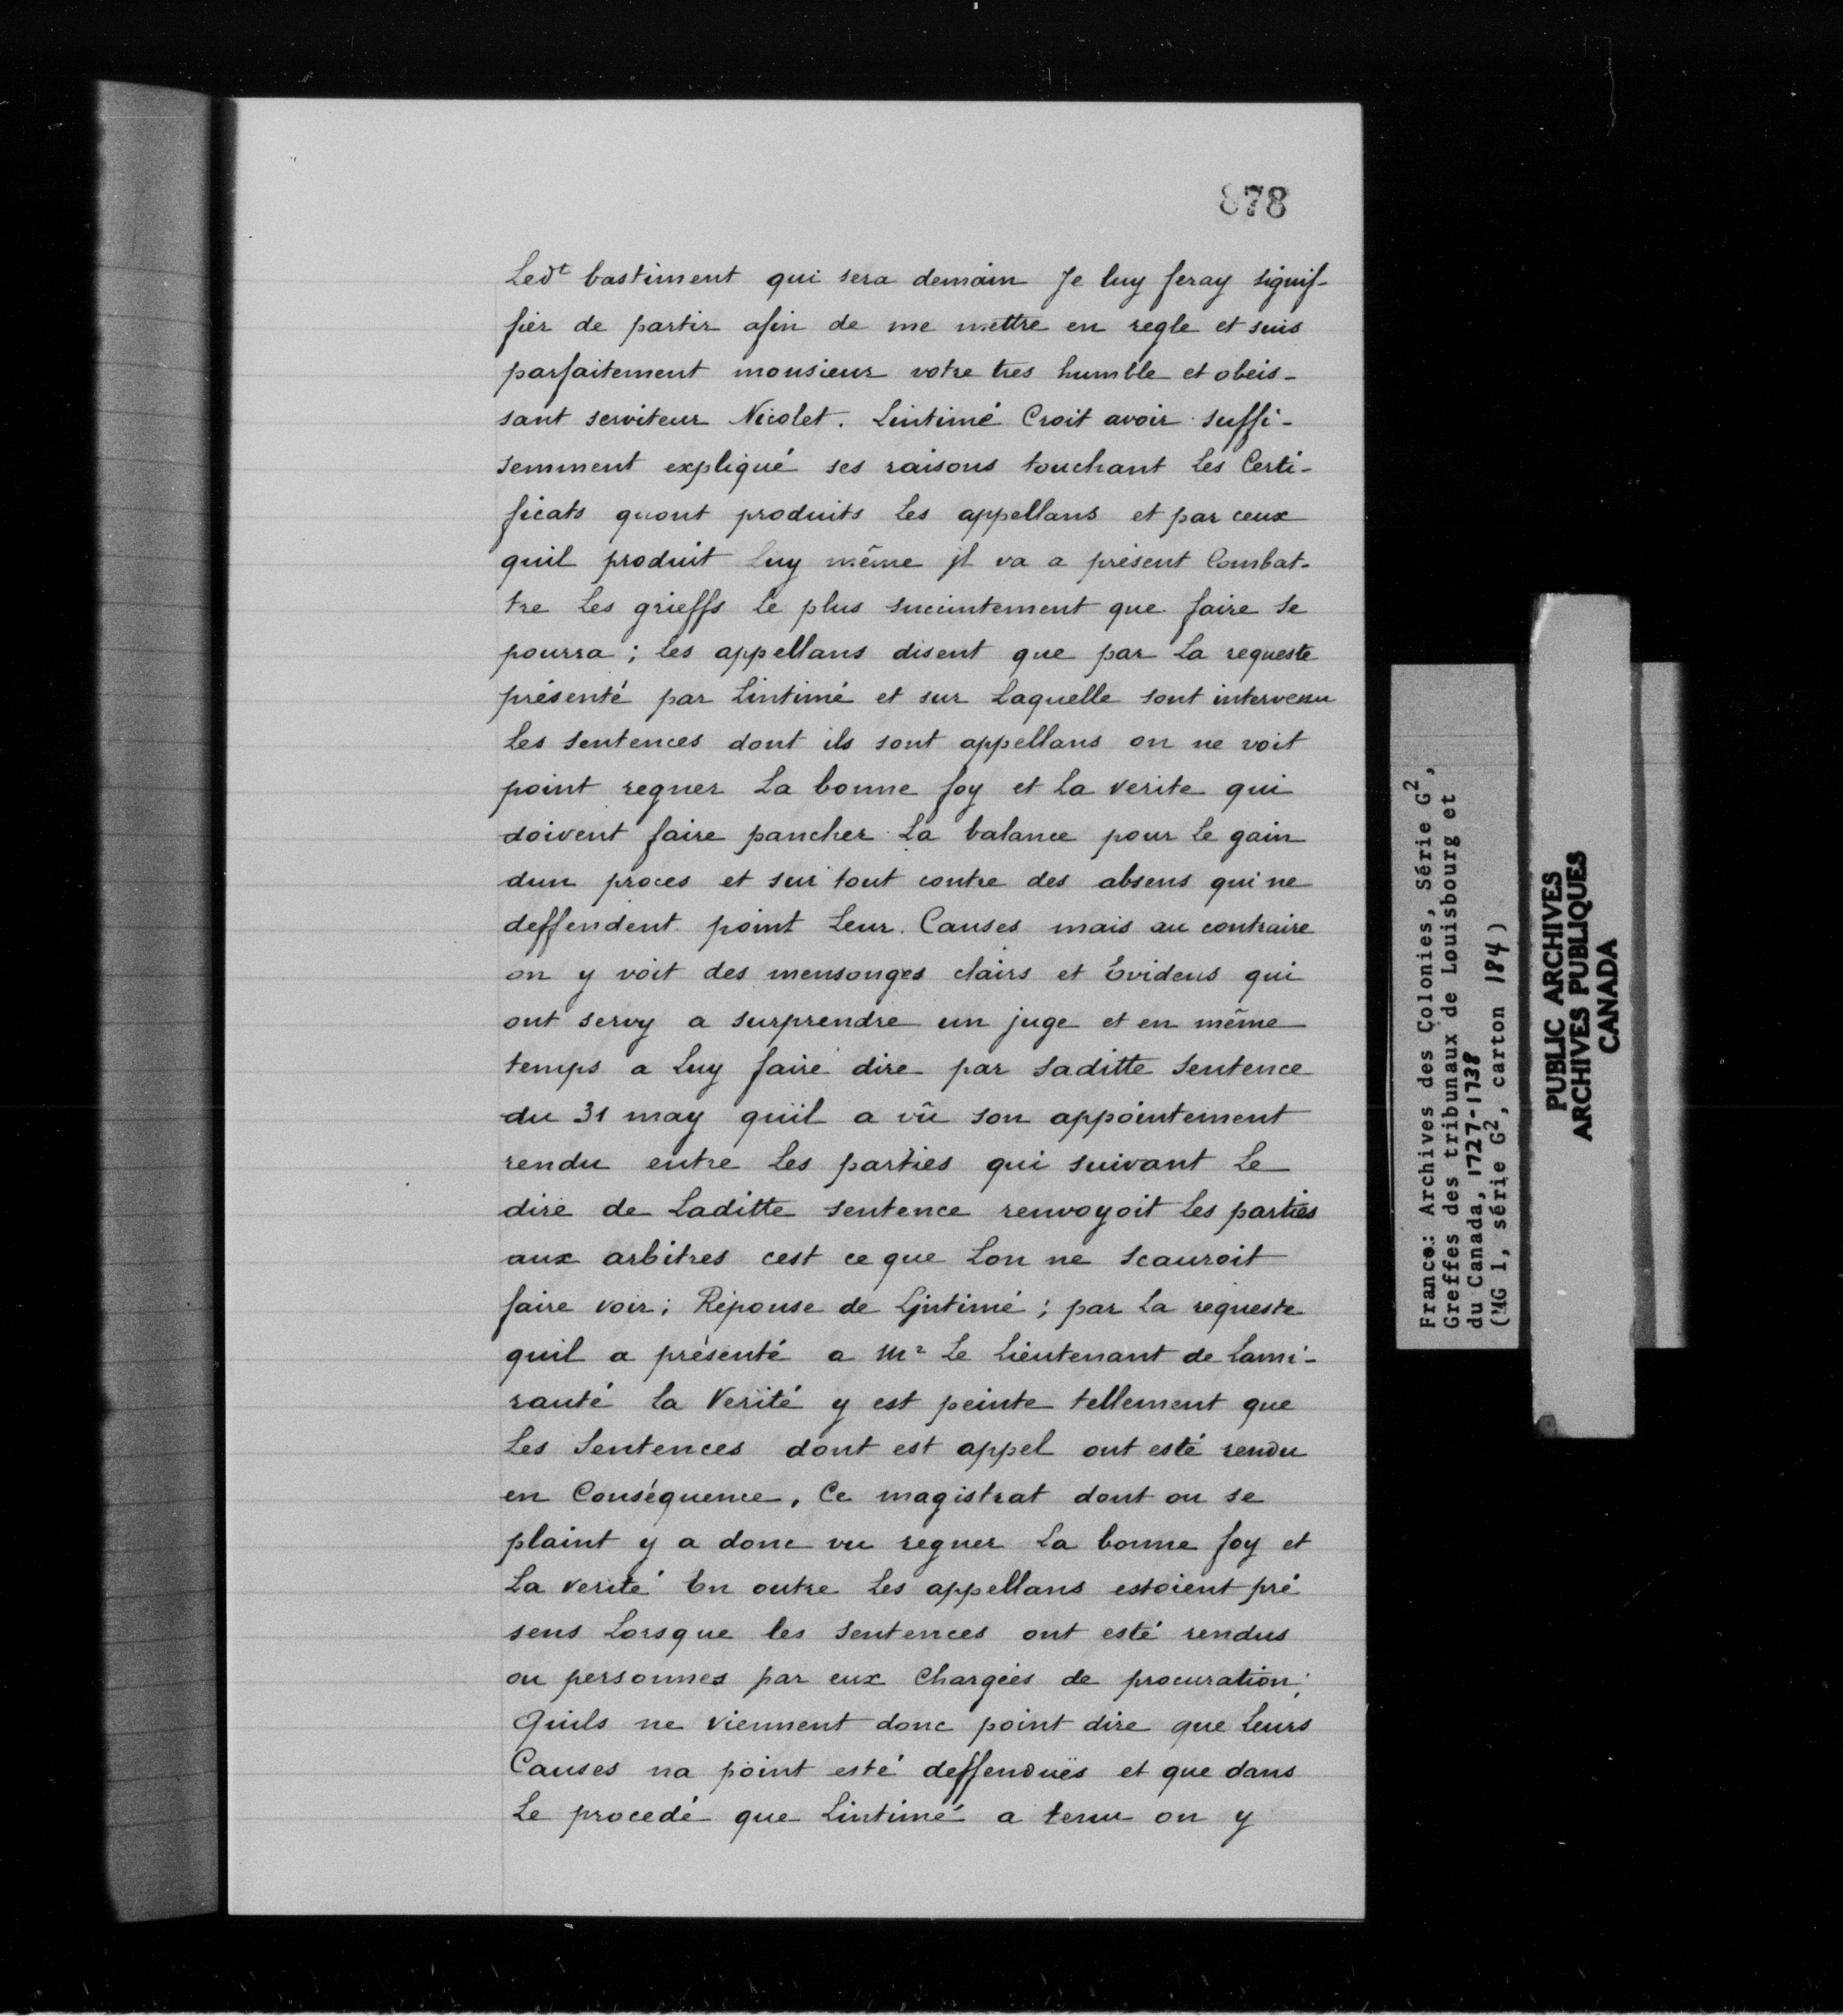 878
Ledt bastiment qui sera demain Je luy feray signif-
fier de partir afin de me mettre en regle et suis
parfaitement monsieur votre tres humble et obeis-
sant serviteur Nicolet. Lintimé Croit avoir suffi-
semment expliqué ses raisons touchant Les Certi-
ficats quont produits Les appellans et par ceux
quil produit Luy même jl va a présent Combat-
tre Les grieffs Le plus succintement que faire se
pourra ; Les appellans disent que par La requeste
présenté par Lintimé et sur Laquelle sont intervenu
Les sentences dont ils sont appellans on ne voit
point regner La bonne foy et La verite qui
doivent faire pancher La balance pour Le gain
dun proces et sur tout contre des absens qui ne
deffendent point Leur Causes mais au contraire
on y voit des mensonges clairs et Evidens qui
ont servy a surprendre un juge et en même
temps a Luy faire dire par saditte sentence
du 31 may quil a vû son appointement
rendu entre Les parties qui suivant Le
dire de Laditte sentence renvoyoit Les parties
aux arbitres cest ce que Lon ne scauroit
faire voir ; Réponse de Ljntimé ; par La requeste
quil a présenté a Mr Le Lieutenant de Lami-
rauté La Verité y est peinte tellement que
Les Sentences dont est appel ont esté rendu
en Conséquence, Ce magistrat dont on se
plaint y a donc vu regner La bonne foy et
La verité En outre Les appellans estoient pré
sens Lorsque les sentences ont esté rendus
ou personnes par eux Chargées de procuration ;
Quils ne viennent donc point dire que Leurs
Causes na point esté deffenduës et que dans
Le procedé que Lintimé a tenu on y
France: Archives des Colonies, Série G2,
Greffes des tribunaux de Louisbourg et
du Canada, 1727-1738
(MG 1, série G2, carton 184)
PUBLIC ARCHIVES
ARCHIVES PUBLIQUES
CANADA